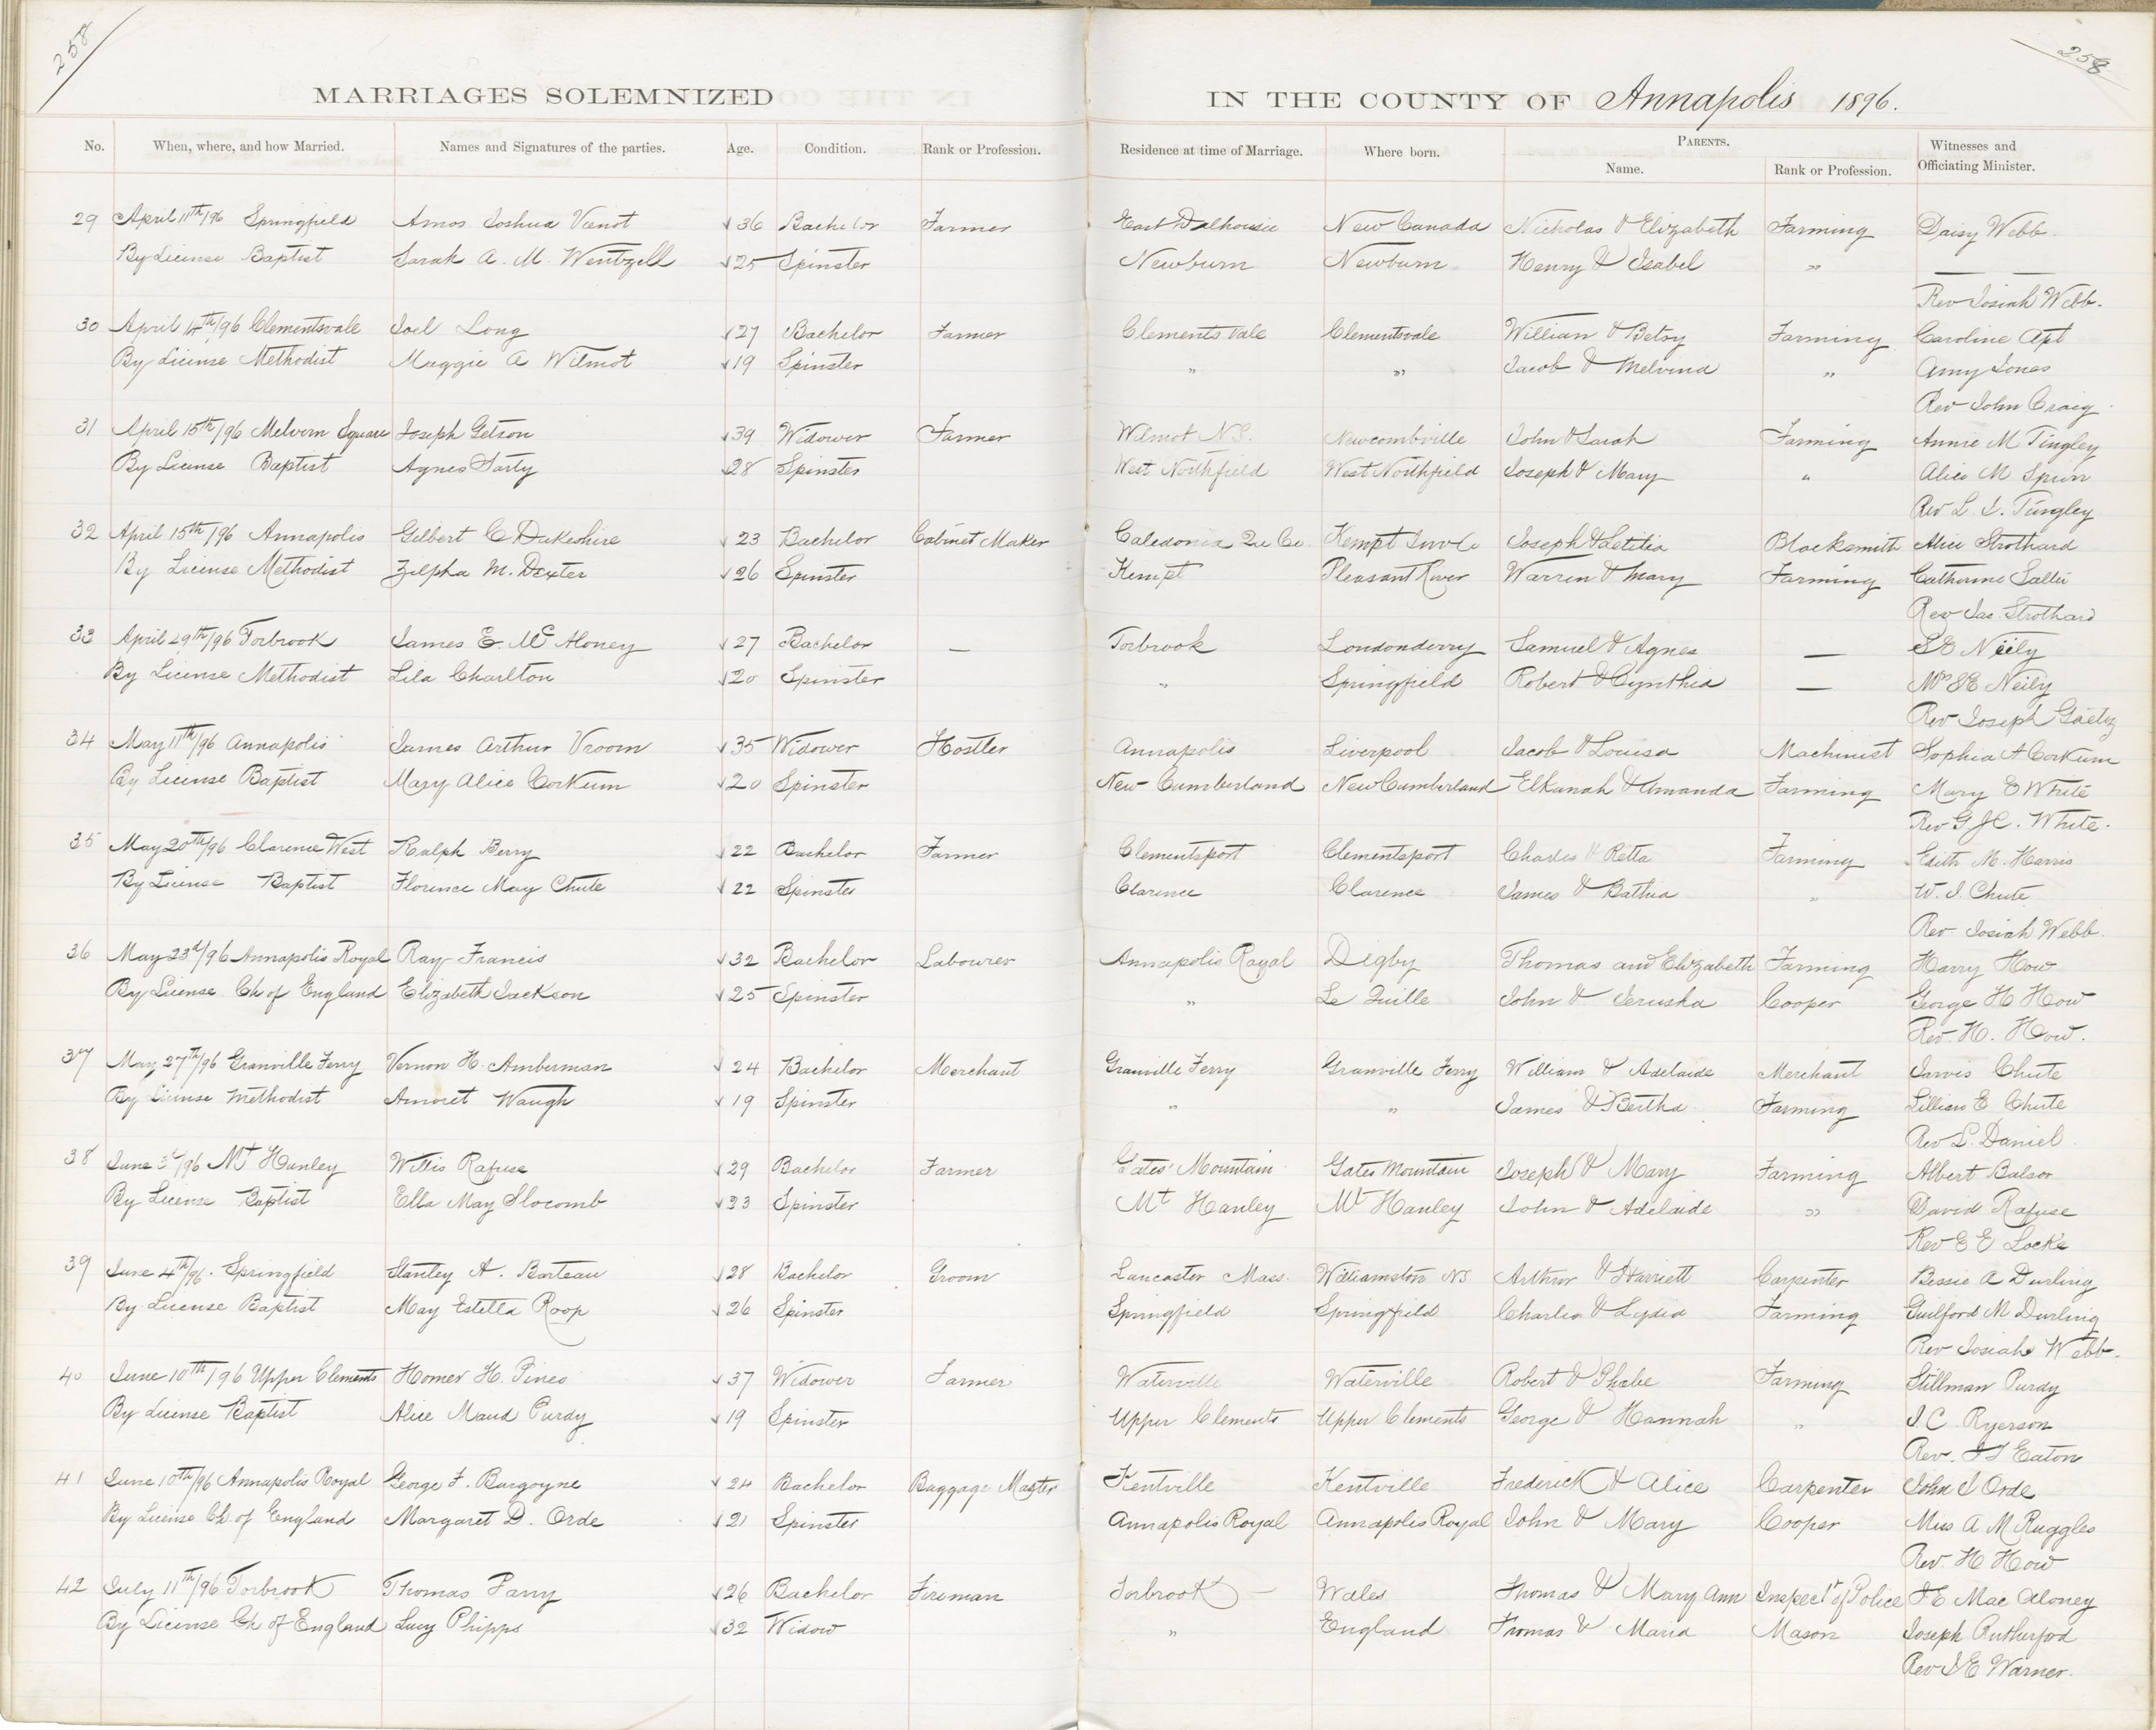 258
258
MARRIAGES SOLEMNIZED IN THE COUNTY OF Annapolis 1896.
No. When, where, and how Married. Names and Signatures of the parties. Age. Condition. Rank or Profession. Residence at time of Marriage. Where born. PARENTS. Name. Rank or Profession. Witnesses and Officiating Minister.
29 April 11th/96 Springfield Amos Joshua Veinot √36 Bachelor Farmer East Dalhousie New Canada Nicholas & Elizabeth Farming Daisy Webb
By License Baptist Sarah A. M. Wentzell √25 Spinster Newburn Newburn Henry & Isabel " — —
Rev Josiah Webb.
30 April 14th/96 Clementsvale Joel Long √27 Bachelor Farmer Clements Vale Clementsvale William & Betsy Farming Caroline Apt
By License Methodist Maggie A Wilmot √19 Spinster " " Jacob & Melvina " Amy Jones
Rev John Craig
31 April 15th/96 Melvern Square Joseph Getson √39 Widower Farmer Wilmot N.S. Newcombville John & Sarah Farming Annie M Tingley
By License Baptist Agnes Sarty √28 Spinster West Northfield West Northfield Joseph & Mary " Alice M Spurr
Rev L. J. Tingley
32 April 15th/96 Annapolis Gilbert C Dukeshire √23 Bachelor Cabinet Maker Caledonia Qu Co Kempt Joseph & Letitia Blacksmith Alice Strothard
By License Methodist Zilpha M. Dexter √26 Spinster Kempt Pleasant River Warren & Mary Farming Catherine Salter
Rev Jas Strothard
33 April 29th/96 Torbrook James E. Mc Aloney √27 Bachelor — Torbrook Londonderry Samuel & Agnes — S E Neily
By License Methodist Lila Charlton √20 Spinster " Springfield Robert & Cynthia — Mrs S E Neily
Rev Joseph Gaetz
34 May 11th/96 Annapolis James Arthur Vroom √35 Widower Hostler Annapolis Liverpool Jacob & Louisa Machinist Sophia A Corkum
By License Baptist Mary Alice Corkum √20 Spinster New Cumberland New Cumberland Elkanah & Amanda Farming Mary E White
Rev G J C. White.
35 May 20th/96 Clarence West Ralph Berry √22 Bachelor Farmer Clementsport Clementsport Charles & Retta Farming Edith M. Harris
By License Baptist Florence May Chute √22 Spinster Clarence Clarence James & Bathia " W. J. Chute
Rev. Josiah Webb.
36 May 23d/96 Annapolis Royal Ray Francis √32 Bachelor Labourer Annapolis Royal Digby Thomas and Elizabeth Farming Harry How
By License Ch of England Elizabeth Jackson √25 Spinster " Le Quille John & Jerusha Cooper George H How
Rev. H. How.
37 May 27th/96 Granville Ferry Vernon H. Amberman √24 Bachelor Merchant Granville Ferry Granville Ferry William & Adelaide Merchant Jarvis Chute
By License Methodist Amoret Waugh √19 Spinster " " James & Bertha Farming Lillian E Chute
Rev L. Daniel
38 June 3d/96 Mt Hanley Willis Rafuse √29 Bachelor Farmer Gates' Mountain Gates Mountain Joseph & Mary Farming Albert Balsor
By License Baptist Ella May Slocomb √33 Spinster Mt Hanley Mt Hanley John & Adelaide " David Rafuse
Rev E E Locke
39 June 4th/96. Springfield Stanley A. Barteau √28 Bachelor Groom Lancaster Mass. Williamston NS Arthur & Harriett Carpenter Bessie A Durling
By License Baptist May Estella Roop √26 Spinster Springfield Springfield Charles & Lydia Farming Guilford M Durling
Rev Josiah Webb.
40 June 10th/96 Upper Clements Homer H. Pineo √37 Widower Farmer Waterville Waterville Robert & Phabe Farming Stillman Purdy
By License Baptist Alice Maud Purdy √19 Spinster Upper Clements Upper Clements George & Hannah " J C. Ryerson
Rev. Eaton
41 June 10th/96 Annapolis Royal George F. Burgoyne √24 Bachelor Baggage Master Kentville Kentville Frederick & Alice Carpenter John J Orde
By License Ch. of England Margaret D. Orde √21 Spinster Annapolis Royal Annapolis Royal John & Mary Cooper Miss A M Ruggles
Rev. H How
42 July 11th/96 Torbrook Thomas Parry √26 Bachelor Fireman Torbrook — Wales Thomas & Mary Ann Inspectr of Police J E Mac Aloney
By License Ch of England Lucy Phipps √32 Widow " England Thomas & Maria Mason Joseph Rutherfod
Rev J E Warner.